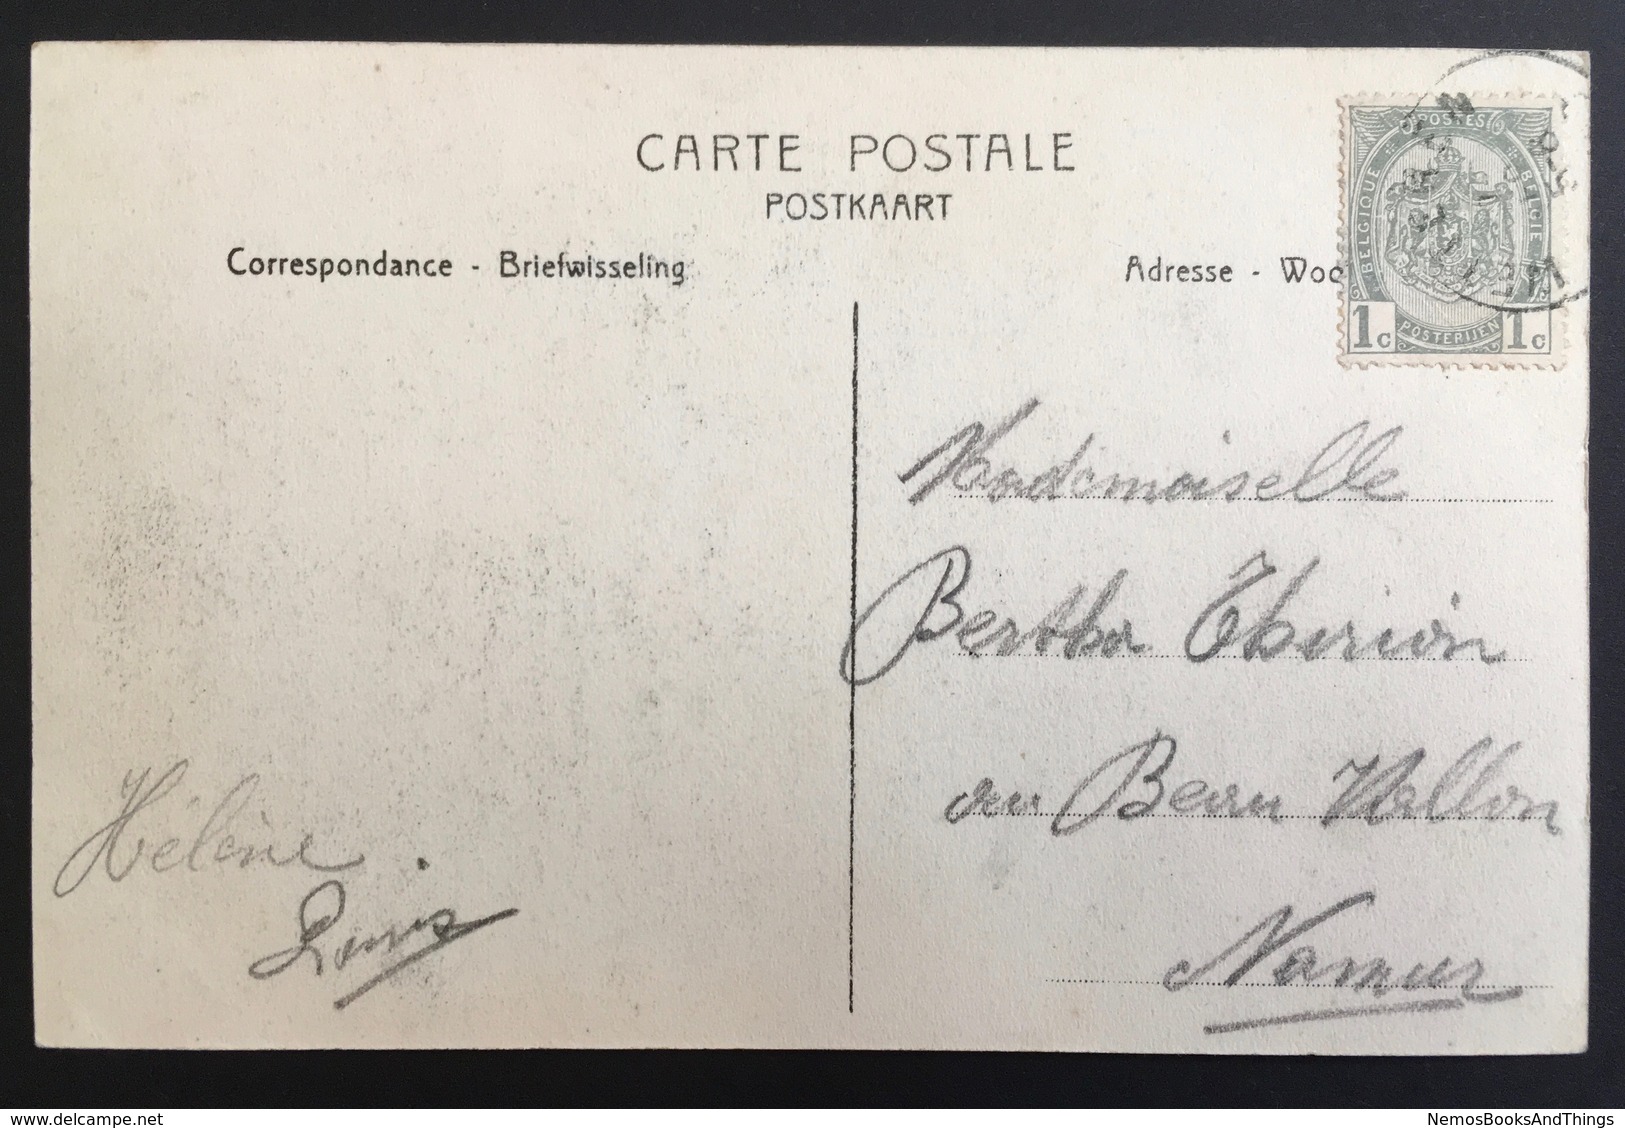 CARTE POSTALE
POSTKAART
Correspondance - Briefwisseling
Adresse - Woo
POSTES
BELGIQUE
BELGIE
POSTERIJEN
1c 1c
Mademoiselle
Bertha
au Beau Vallon
Namur
Hélène
delcampe.net
NemosBooksAndThings